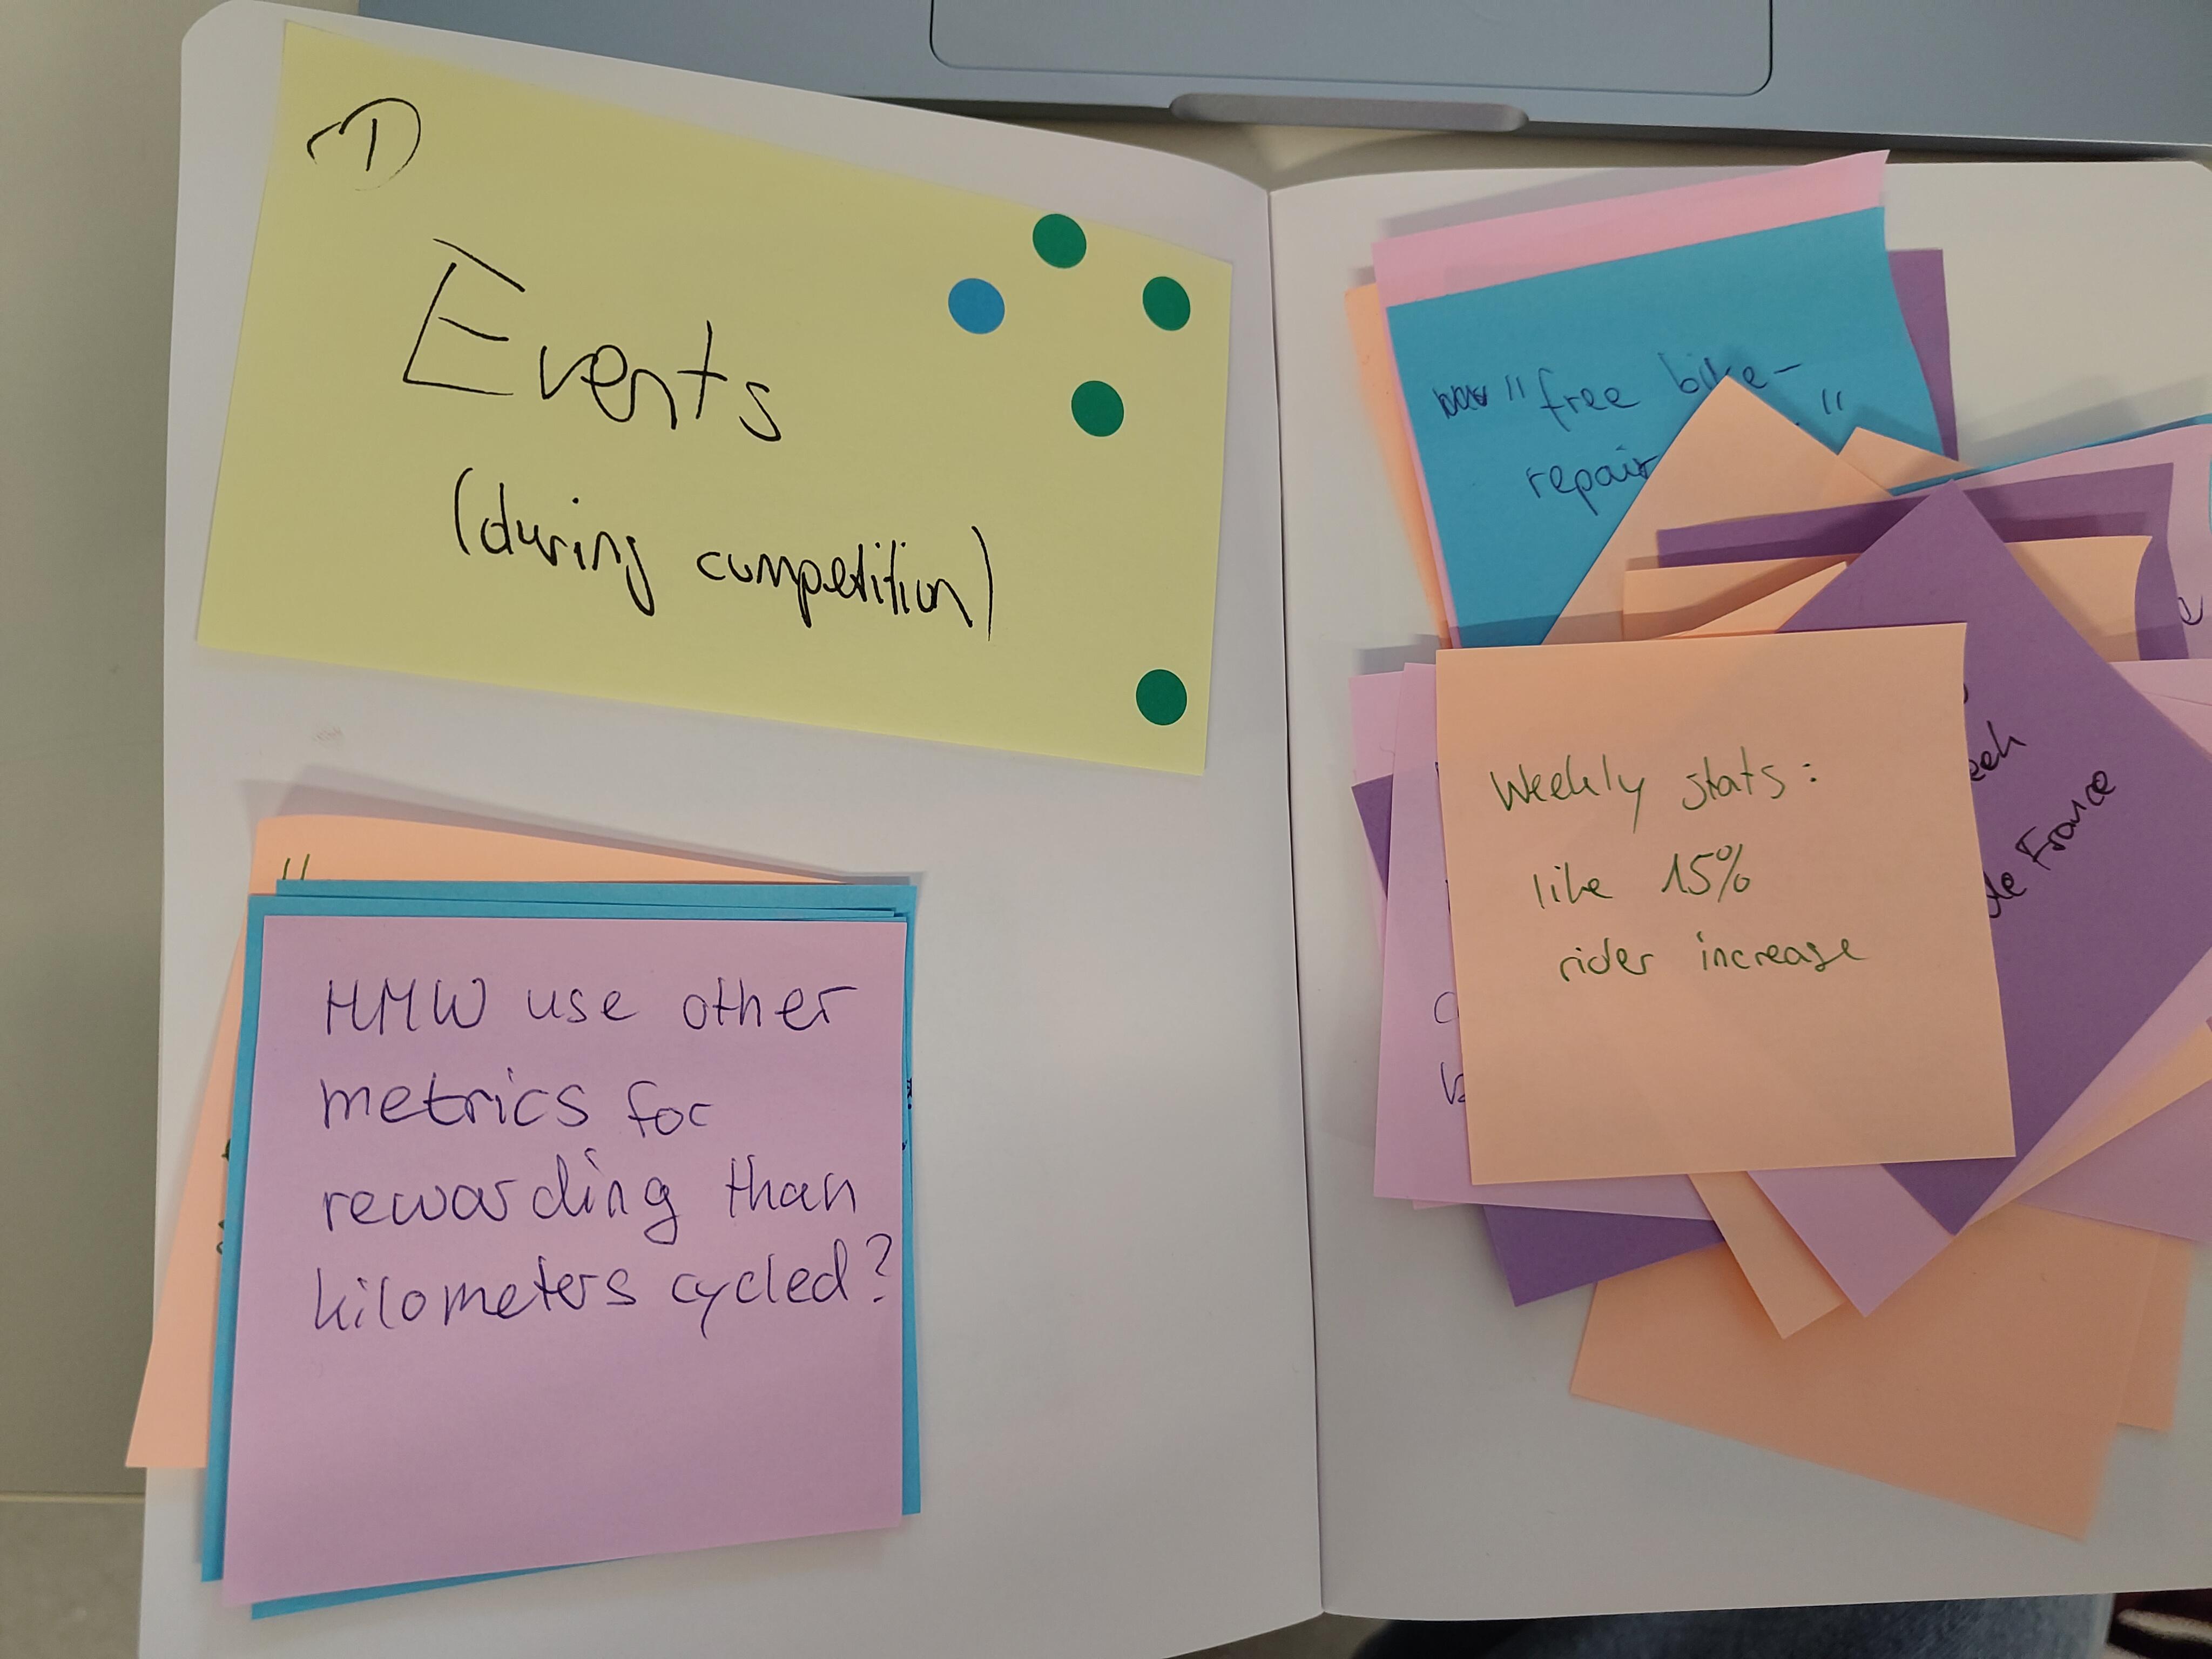 1
Events
(during competition)
HMW use other
metrics for
rewarding than
kilometers cycled?
"free bike-
repair "
Weekly stats:
like 15%
rider increase
de France